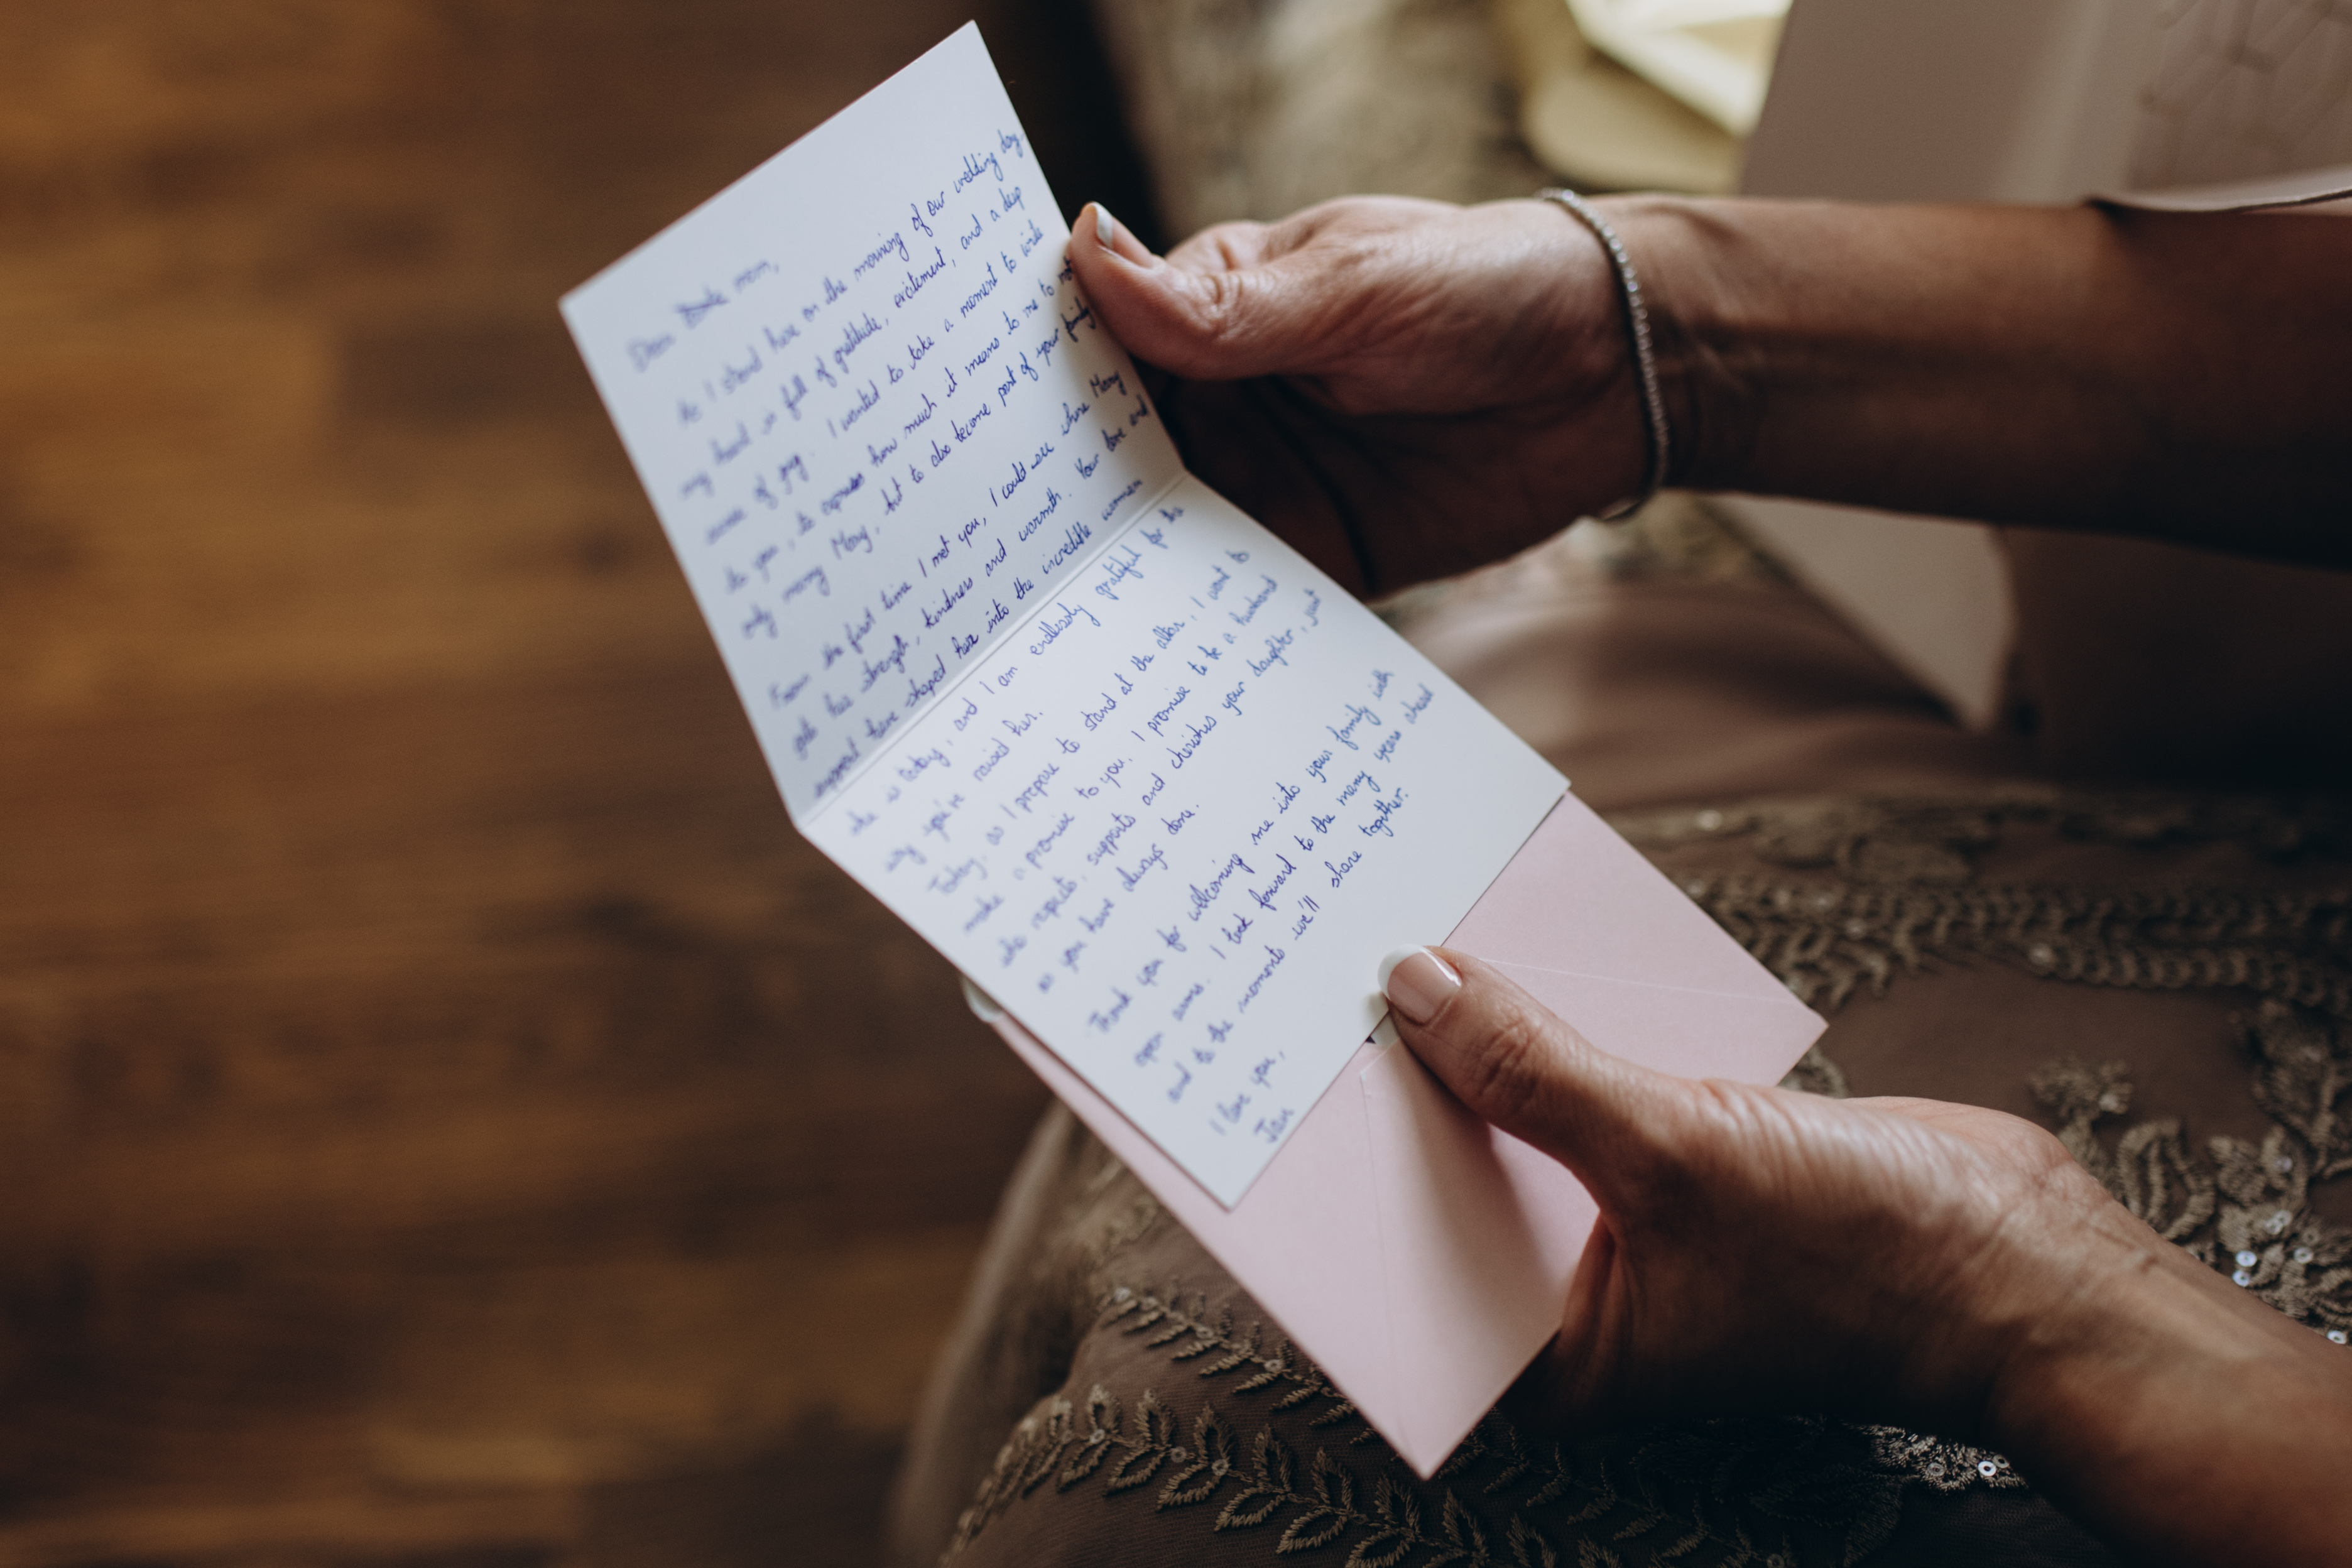 Dear mom,
As I stand here on the morning of our wedding day,
my heart is full of gratitude, excitement, and a deep
sense of joy. I wanted to take a moment to write
to you, to express how much it means to me to not
only marry Mary, but to also become part of your family.
From the first time I met you, I could see where Mary
got her strength, kindness and warmth. Your love and
support have shaped her into the incredible woman
she is today, and I am endlessly grateful for the
way you've raised her.
Today, as I prepare to stand at the altar, I want to
make a promise to you. I promise to be a husband
who respects, supports and cherishes your daughter, just
as you have always done.
Thank you for welcoming me into your family with
open arms. I look forward to the many years ahead
and to the moments we'll share together.
I love you,